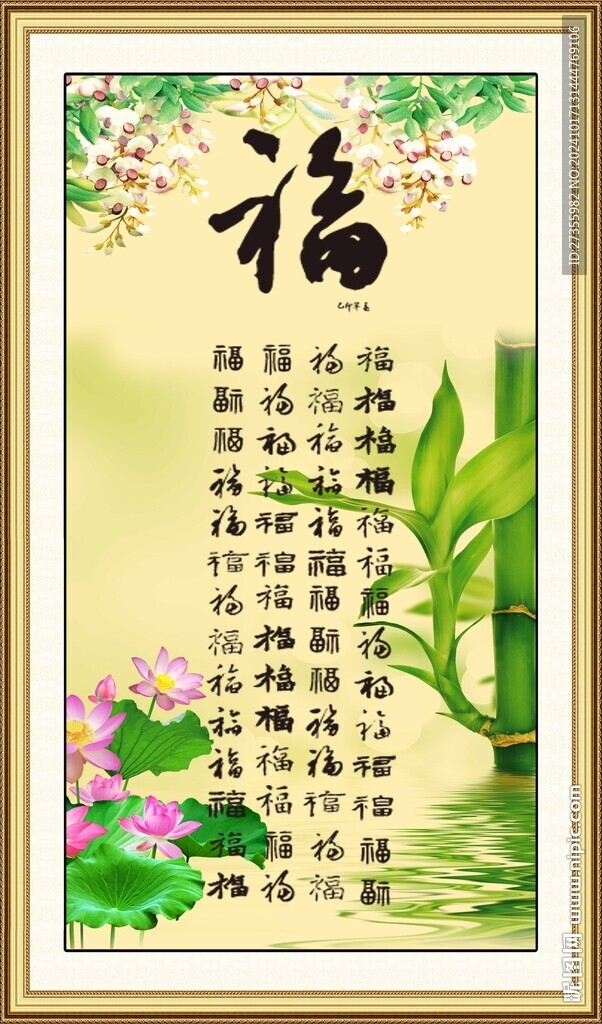 福
福 福 福 福
福 福 福 福
福 福 福 福
福 福 福 福
福 福 福 福
福 福 福 福
福 福 福 福
福 福 福 福
福 福 福 福
福 福 福 福
福 福 福 福
福 福 福 福
福 福 福 福
福 福 福 福
ID:27355982 NO:20241017131444769106
昵图网 www.nipic.com